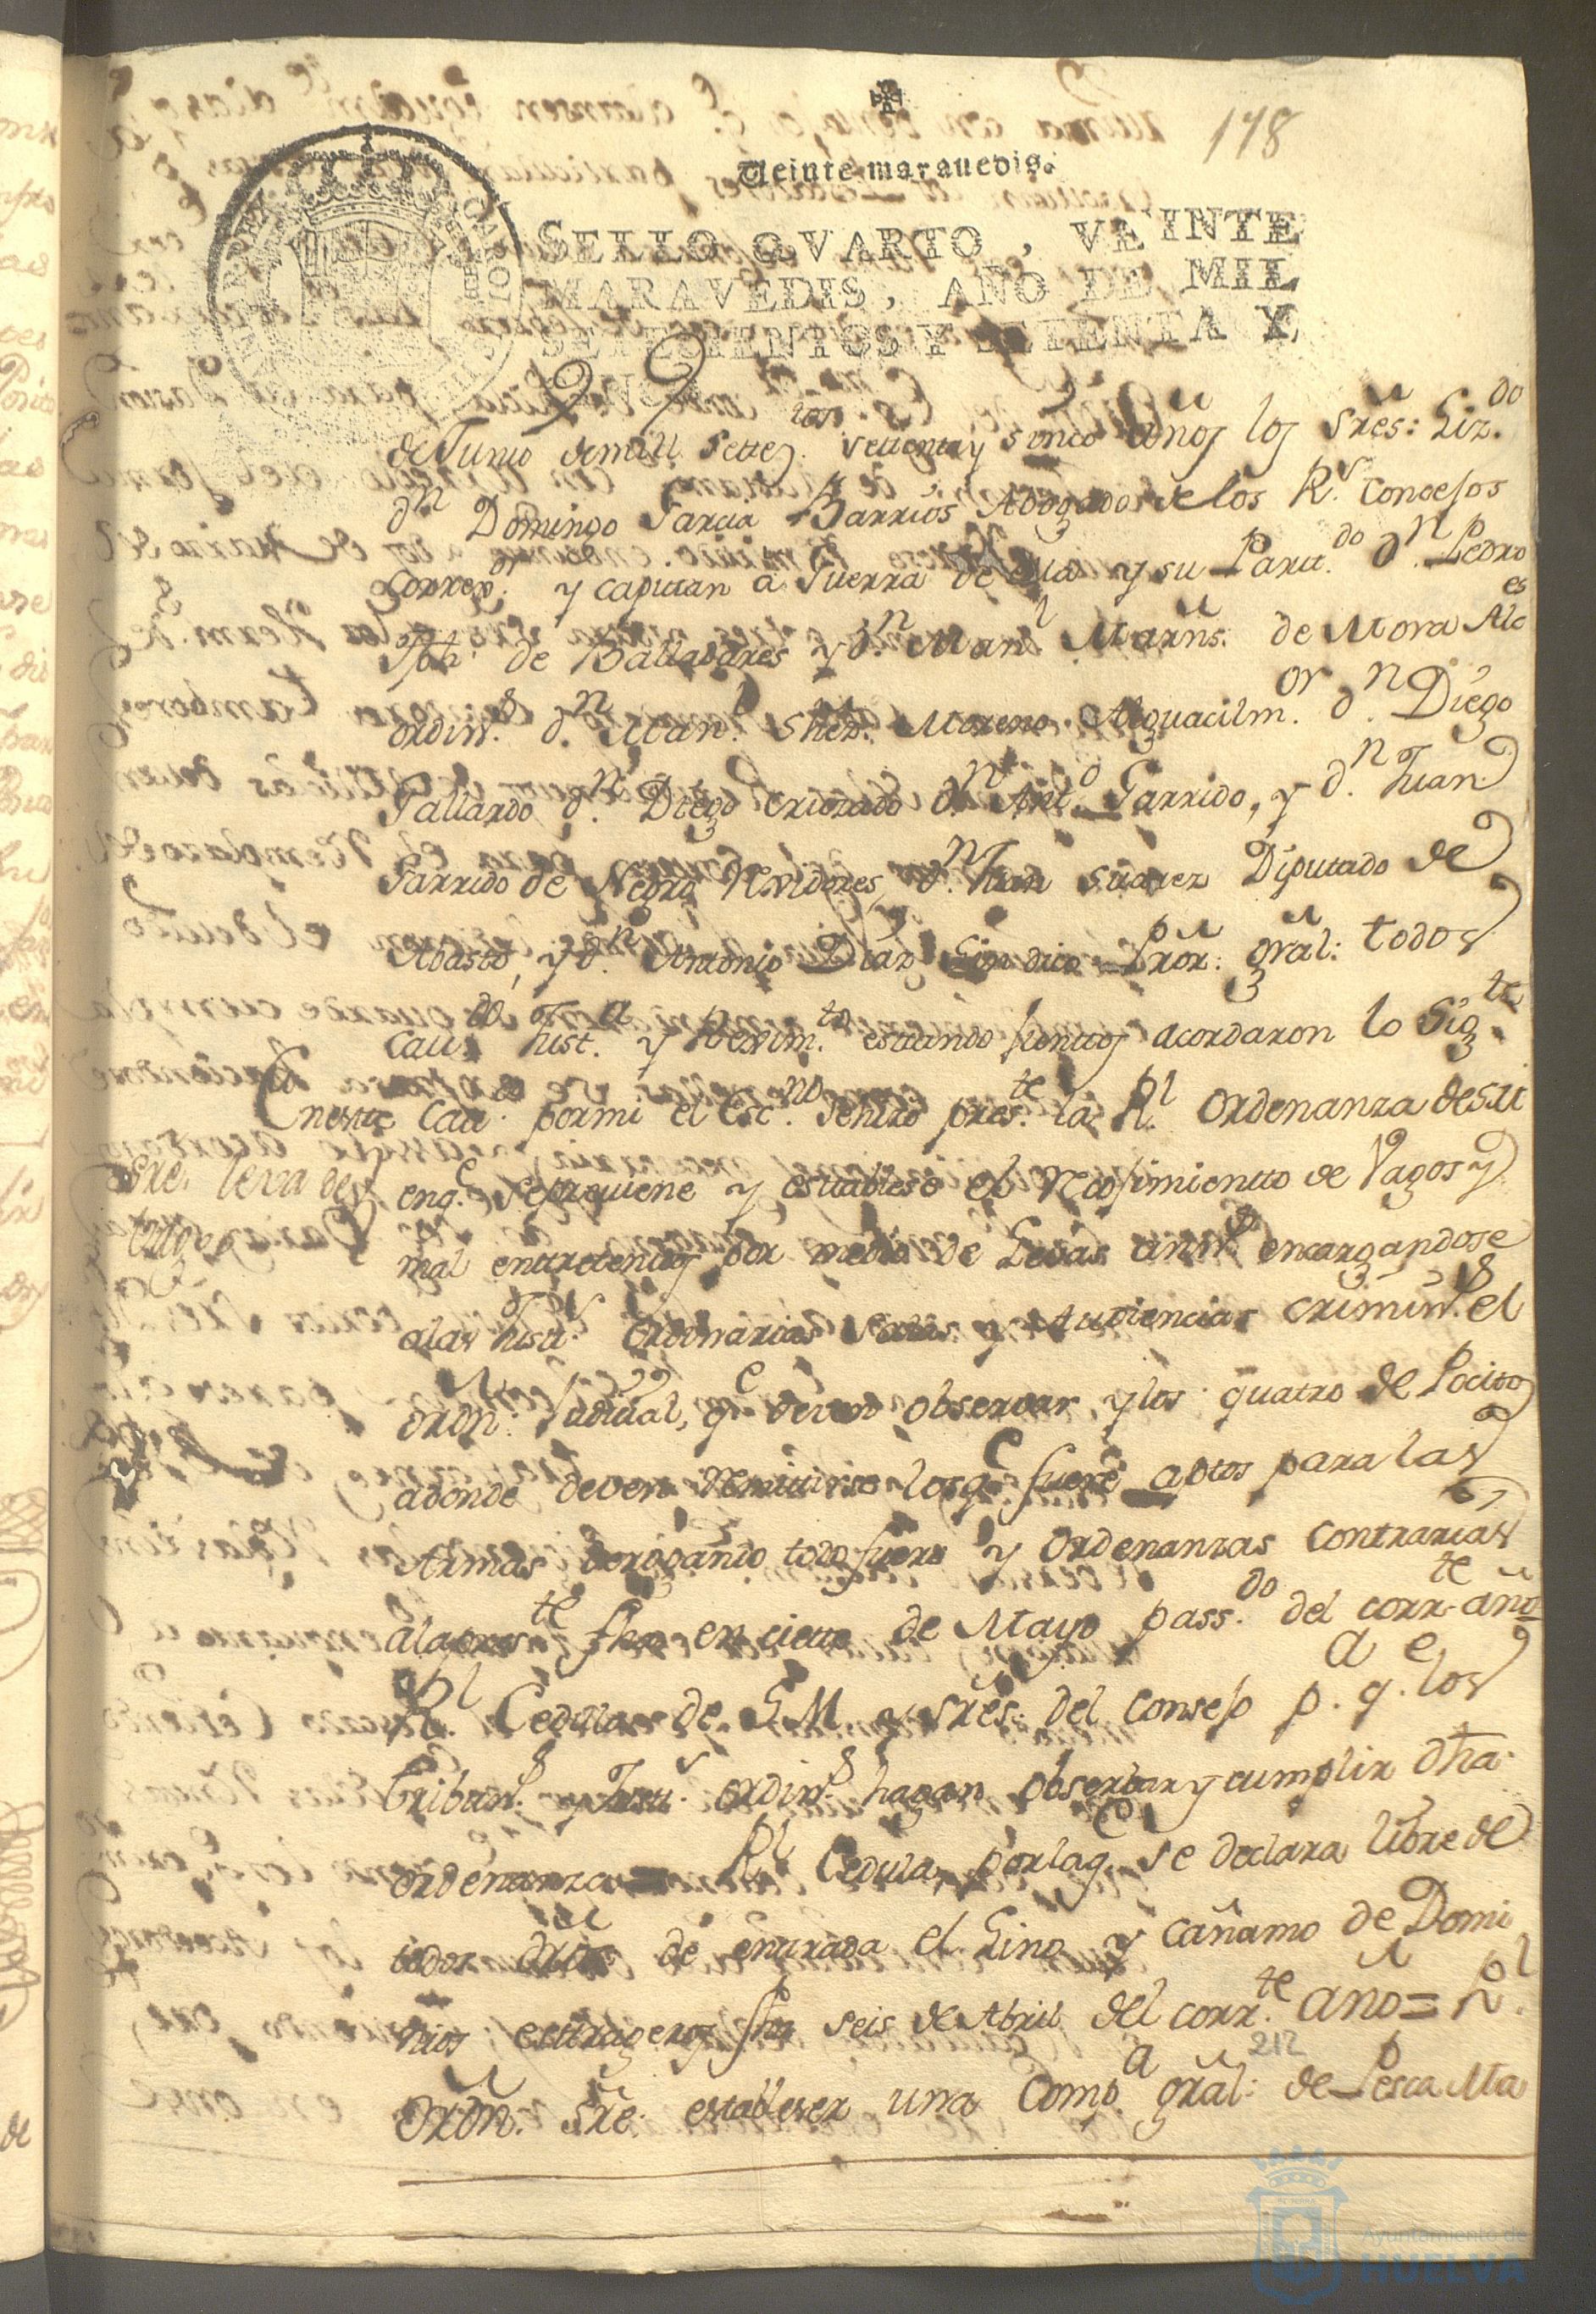 178
Veinte maravedis.
SELLO QVARTO, VEINTE
MARAVEDIS, AÑO DE MIL
SETECIENTOS Y SETENTA Y
de Junio de mill settez.tos settenta y sinco años los Sres: Liz.do
dn Domingo Garcia Barrios Abogado de los R.s Concejos
Correx.or y capittan a Guerra de ella y su Partt.do dn. Pedro
Jph de Balladares y dn. Manl Marñs: de Mora Alces
ordin.s dn. Man.l Shez. Moreno Alguacil m.or dn. Diego
Gallardo dn. Diego Criozado dn. Antt.o Garrido, y dn. Juan
Garrido de Negro Rexidores, dn. Juan Suarez Diputado de
Abasto, y dn. Antonio Diaz Sindico Prór: grál: todos
Cav.do Just.a y Rexim.to estando junttos acordaron lo Sig.te
En este Cav.do por mi el Esc.no se hizo pres.te la Rl. Ordenanza de su
Sre. leva de
eng.e se previene y establese el Recojimientto de Vagos y
mal enttretenidos por medio de Levas encargandose
alas Justt.s Ordinarias Salas y Audiencias Crimin.s el
ordn: Judicial, q.e deven observar, y los quatro de Pocito
adonde deven Remitirse los q.e fuere aptos para las
Armas derogando todo fuero y Ordenanzas Contrarias
ala pres.te fha en ciette de Mayo pass.do del corr.te año
Rl. Cedula de S.M. y Sres: del Consejo p.a q.e los
tribun.s y Justt.s ordin.s hagan observar y cumplir dha
ordenanza = Rl Cedula, por la q.e se declara libre de
todos dros de entrada el Lino y Cañamo de Domi
nios estrageros fha seis de Abril del corr.te año = Rl.
212
Ordn. Sre. establecer una Comp.a grál: de Pesca Ma
Ayuntamiento de
HUELVA